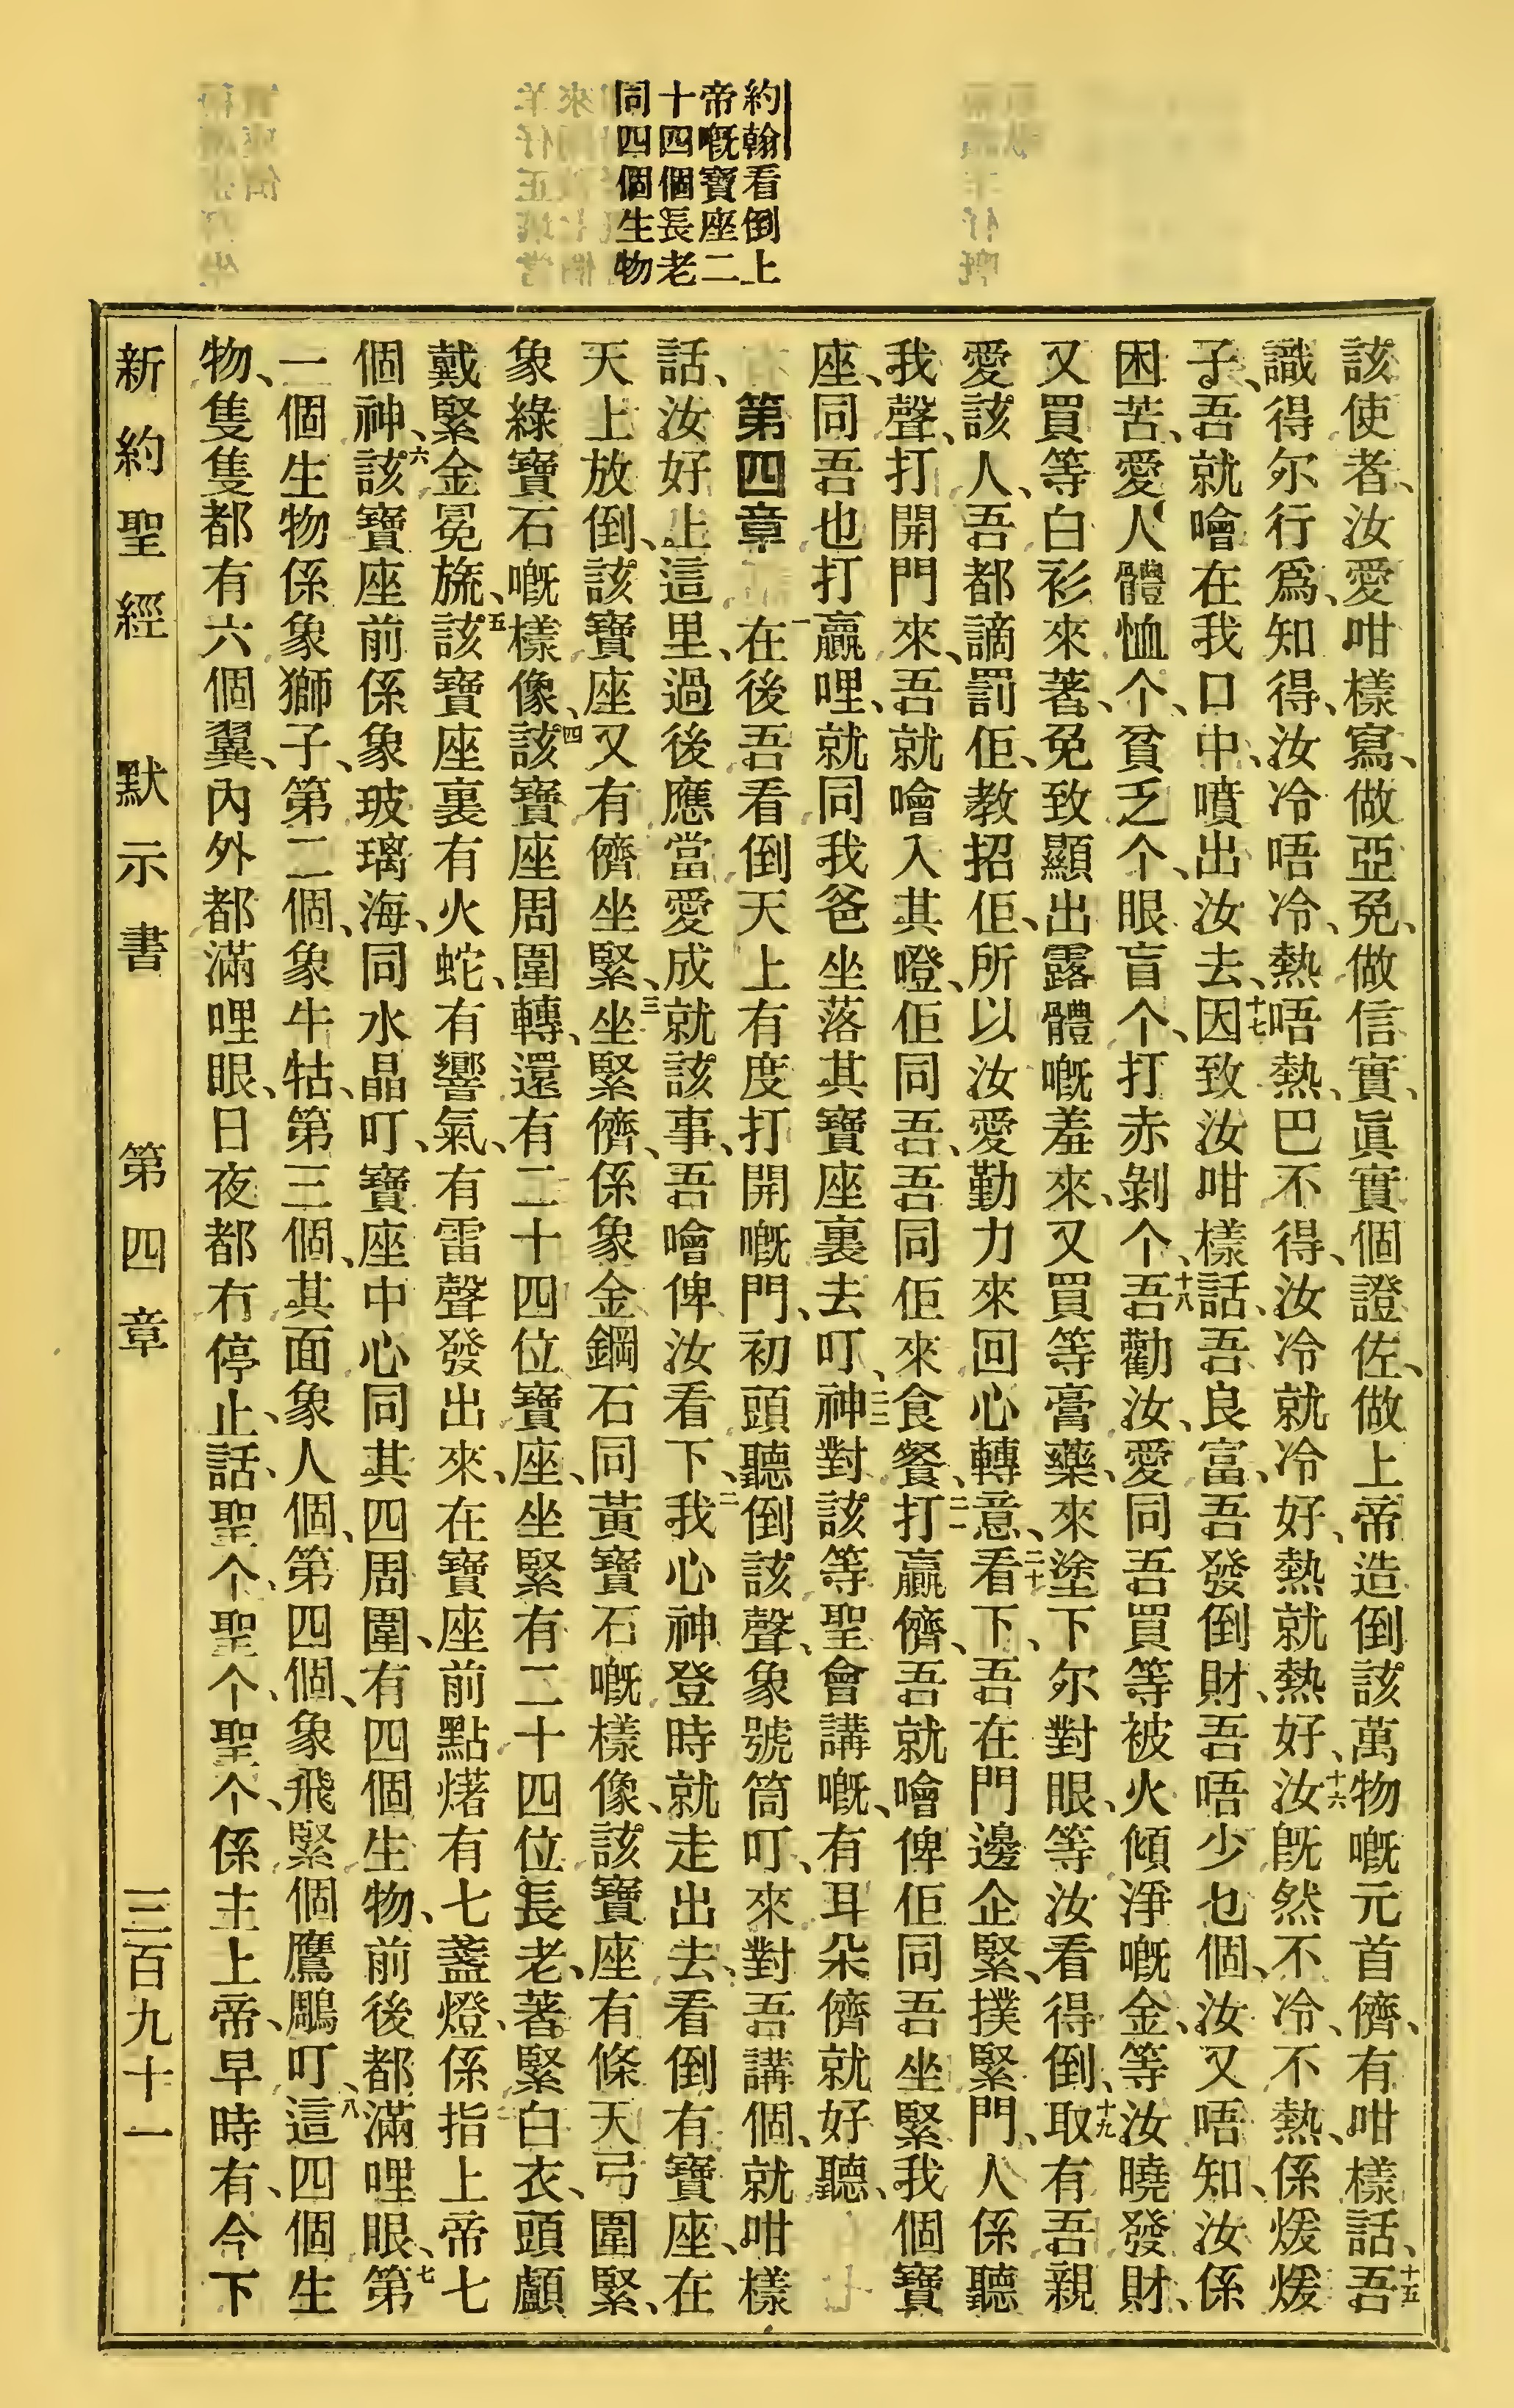 約翰看倒上
帝嘅寶座二
十四個長老
同四個生物
該使者、汝愛咁樣寫、做亞㝃、做信實、眞實個證佐、做上帝造倒該萬物嘅元首儕、有咁樣話、十五吾
識得尔行爲、知得、汝冷唔冷、熱唔熱、巴不得、汝冷就冷好、熱就熱好、十六汝旣然不冷、不熱、係煖煖
子、吾就噲在我口中、噴出汝去、十七因致汝咁樣話、吾良富、吾發倒財、吾唔少也個、汝又唔知、汝係
困苦、愛人體恤个、貧乏个、眼盲个、打赤剝个、十八吾勸汝、愛同吾買等被火傾淨嘅金、等汝曉發財、
又買等白衫來著、免致顯出露體嘅羞來、又買等膏藥、來塗下尔對眼、等汝看得倒、十九取有吾親
愛該人、吾都謫罰佢、教招佢、所以汝愛勤力來回心轉意、二十看下、吾在門邊企緊、撲緊門、人係聽
我聲、打開門來、吾就噲入其噔、佢同吾、吾同佢來食餐、二一打贏儕、吾就噲俾佢同吾坐緊我個寶
座、同吾也打贏哩、就同我爸坐落其寶座裏去叮、二二神對該等聖會講嘅、有耳朵儕就好聽、
第四章　一在後吾看倒天上有度打開嘅門、初頭聽倒該聲、象號筒叮、來對吾講個、就咁樣
話、汝好上這里、過後應當愛成就該事、吾噲俾汝看下、二我心神登時就走出去、看倒有寶座、在
天上放倒、該寶座又有儕坐緊、三坐緊儕、係象金鋼石同黃寶石嘅樣像、該寶座有條天弓圍緊、
象綠寶石嘅樣像、四該寶座周圍轉、還有二十四位寶座、坐緊有二十四位長老、著緊白衣、頭顱
戴緊金冕旒、五該寶座裏有火蛇、有響氣、有雷聲發出來、在寶座前點𤏸有七盞燈、係指上帝七
個神、六該寶座前係象玻璃海、同水晶叮、寶座中心同其四周圍、有四個生物、前後都滿哩眼、七第
一個生物係象獅子、第二個、象牛牯、第三個、其面象人個、第四個、象飛緊個鷹鵰叮、八這四個生
物、隻隻都有六個翼、內外都滿哩眼、日夜都冇停止、話、聖个、聖个、聖个、係主上帝、早時有、今下
新約聖經　默示書　第四章　三百九十一